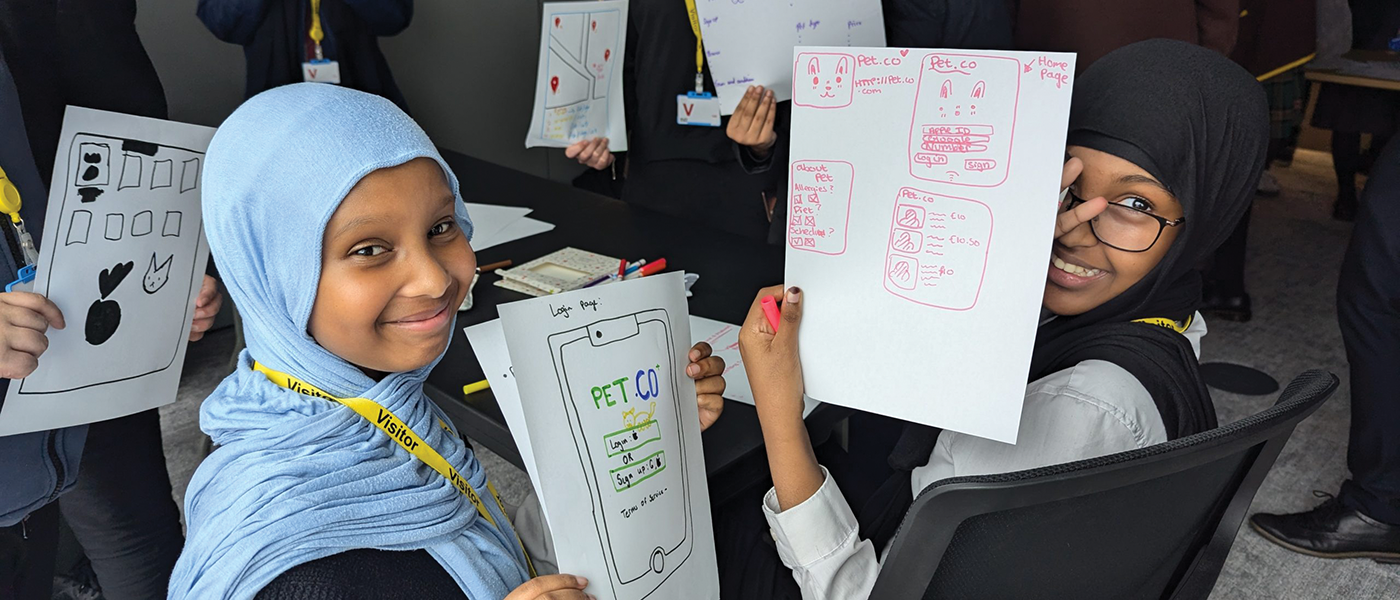 Login page:
PET.CO
Login:
OR
Sign up:
Terms of service-
Pet.co
HTTP://Pet.co
.com
Pet.co
Home
Page
Apple ID
Google
Number
Log in
Sign
About
Pet
Allergies?
Diet?
Schedules?
Pet.co
£10
£10.50
Visitor
Visitor
Visitor
V
V